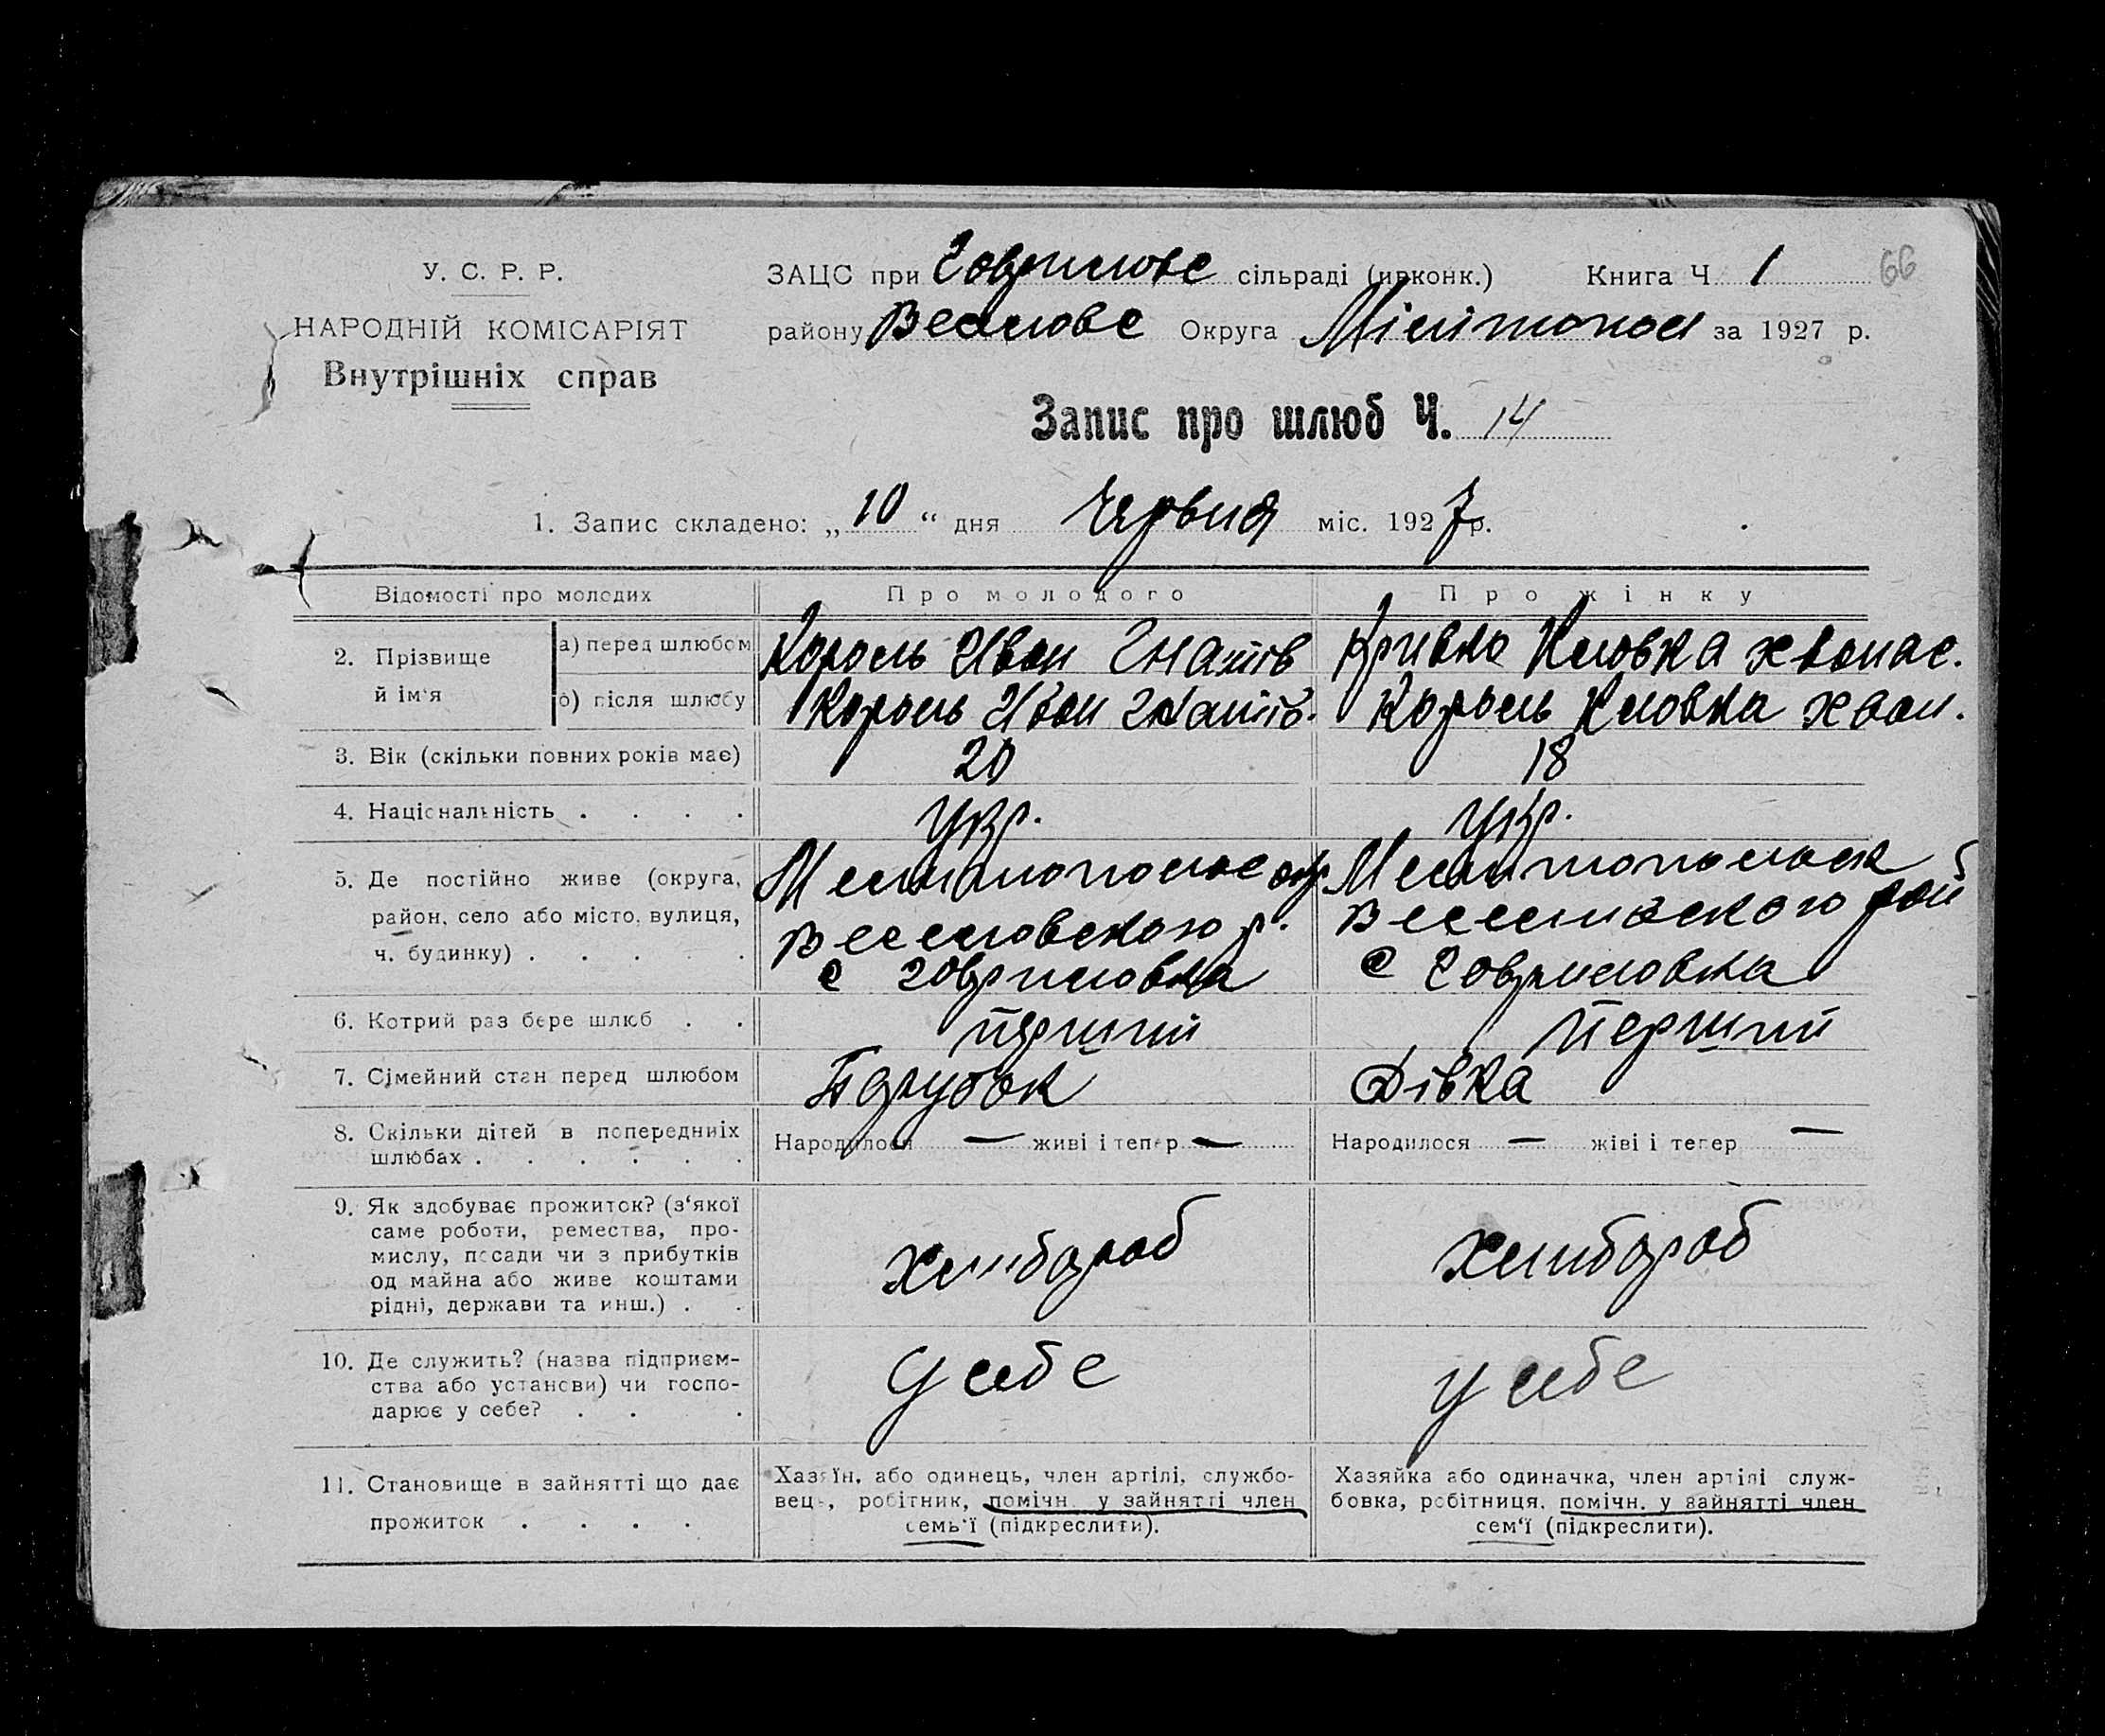 У. С. Р. Р.
НАРОДНІЙ КОМІСАРІЯТ
Внутрішніх справ
ЗАЦС при Говрилове сільраді (ирконк.) Книга Ч 1 66
району Веселове Округа Мілітопол за 1927 р.
Запис про шлюб Ч. 14
1. Запис складено: „10“ дня Червня міс. 1927 р.
Відомості про молодих Про молодого Про жінку
2. Прізвище й ім'я
а) перед шлюбом Король Иван Гнатів Кривко Кловка хвонас.
б) після шлюбу Король Иван Гнатів. Король Кловка хвон.
3. Вік (скільки повних років має) 20 18
4. Національність . . . . укр. укр.
5. Де постійно живе (округа, район, село або місто, вулиця, ч. будинку) . . . . .
Мелитополское окр
Веселовского р.
с Говриловка
Мелитопольск
Веселивского рай
с Говриловка
6. Котрий раз бере шлюб . . перший перший
7. Сімейний стан перед шлюбом Парубок Дівка
8. Скільки дітей в попередниіх шлюбах . . . . . . Народилося — живі і тепер — Народилося — жіві і тепер —
9. Як здобуває прожиток? (з'якої
саме роботи, ремества, про-
мислу, посади чи з прибутків
од майна або живе коштами
рідні, держави та инш.) . .
хлибороб хлибороб
10. Де служить? (назва підприєм-
ства або установи) чи госпо-
дарює у себе? . . .
У себе у себе
11. Становище в зайнятті що дає
прожиток . . . .
Хазяїн, або одинець, член артілі, службо-
вець, робітник, помічн. у зайнятті член
семь'ї (підкреслити).
Хазяйка або одиначка, член артілі служ-
бовка, робітниця, помічн. у зайнятті член
сем'ї (підкреслити).